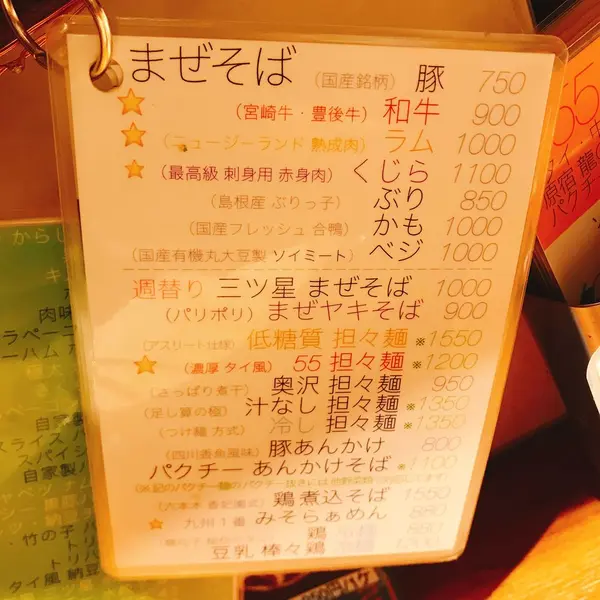 まぜそば （国産銘柄） 豚 750
（宮崎牛・豊後牛） 和牛 900
（ニュージーランド 熟成肉） ラム 1000
（最高級 刺身用 赤身肉） くじら 1100
（島根産 ぶりっ子） ぶり 850
（国産フレッシュ 合鴨） かも 1000
（国産有機丸大豆製 ソイミート） ベジ 1000
週替り 三ツ星 まぜそば 1000
（パリポリ） まぜヤキそば 900
（アスリート仕様） 低糖質 担々麺 ※1550
（濃厚 タイ風） 55 担々麺 ※1200
（さっぱり煮干） 奥沢 担々麺 950
（足し算の極） 汁なし 担々麺 ※1350
（つけ麺 方式） 冷し 担々麺 ※1350
（四川香魚風味） 豚あんかけ 800
パクチー あんかけそば ※1100
鶏煮込そば 1550
九州1番 みそらぁめん 880
鶏
豆乳 棒々鶏
からし
キ
肉味
ラペーニ
ーハム
自家製
スライス
スパイシ
自家製
竹の子
トリ
タイ風 納豆
55
タイ
原宿
パクチ